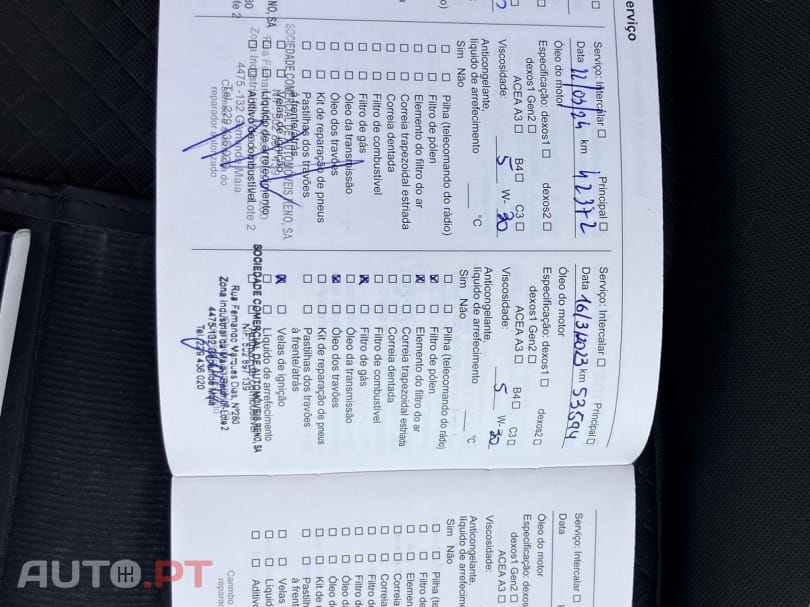 erviço
Serviço: Intercalar ☐ Principal ☐
Data 22/03/24 km 42372
Óleo do motor
Especificação: dexos1 ☐ dexos2 ☐
dexos1 Gen2 ☐
ACEA A3 ☐ B4 ☐ C3 ☐
Viscosidade: 5 W- 30
Anticongelante,
líquido de arrefecimento ____ °C
Sim Não
☐ ☐ Pilha (telecomando do rádio)
☐ ☐ Filtro de pólen
☐ ☐ Elemento do filtro do ar
☐ ☐ Correia trapezoidal estriada
☐ ☐ Correia dentada
☐ ☐ Filtro de combustível
☐ ☐ Filtro de gás
☐ ☐ Óleo da transmissão
☐ ☐ Óleo dos travões
☐ ☐ Kit de reparação de pneus
☐ ☐ Pastilhas dos travões
à frente/atrás
☐ ☐ Velas de ignição
☐ ☐ Líquido de arrefecimento
☐ ☐ Aditivo do combustível
SOCIEDADE COMERCIAL DE AUTOMÓVEIS RENO, SA
4475-132 Maia
Carimbo do
reparador autorizado
Serviço: Intercalar ☐ Principal ☐
Data 16/3/2023 km 53594
Óleo do motor
Especificação: dexos1 ☐ dexos2 ☐
dexos1 Gen2 ☐
ACEA A3 ☐ B4 ☐ C3 ☐
Viscosidade: 5 W- 30
Anticongelante,
líquido de arrefecimento ____ °C
Sim Não
☐ ☐ Pilha (telecomando do rádio)
☒ ☐ Filtro de pólen
☒ ☐ Elemento do filtro do ar
☐ ☐ Correia trapezoidal estriada
☐ ☐ Correia dentada
☐ ☐ Filtro de combustível
☒ ☐ Filtro de gás
☐ ☐ Óleo da transmissão
☒ ☐ Óleo dos travões
☐ ☐ Kit de reparação de pneus
☐ ☐ Pastilhas dos travões
à frente/atrás
☒ ☐ Velas de ignição
☐ ☐ Líquido de arrefecimento
SOCIEDADE COMERCIAL DE AUTOMÓVEIS RENO, SA
Rua Fernando
Zona Industrial da Maia
Tel. 229 436 020
Serviço: Intercalar ☐
Data
Óleo do motor
Especificação: dexos
dexos1 Gen2 ☐
ACEA A3 ☐
Viscosidade:
Anticongelante,
líquido de arrefecimento
Sim Não
☐ ☐ Pilha (te
☐ ☐ Filtro de
☐ ☐ Elemen
☐ ☐ Correia
☐ ☐ Correia
☐ ☐ Filtro d
☐ ☐ Filtro d
☐ ☐ Óleo d
☐ ☐ Óleo d
☐ ☐ Kit de r
☐ ☐ Pastilh
à frent
☐ ☐ Velas
☐ ☐ Líquid
☐ ☐ Aditivo
Carimbo
repara
AUTO.PT